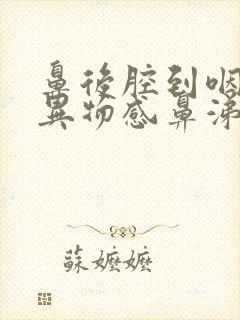 鼻後腔到咽
異物感鼻涕
蘇嬤嬤